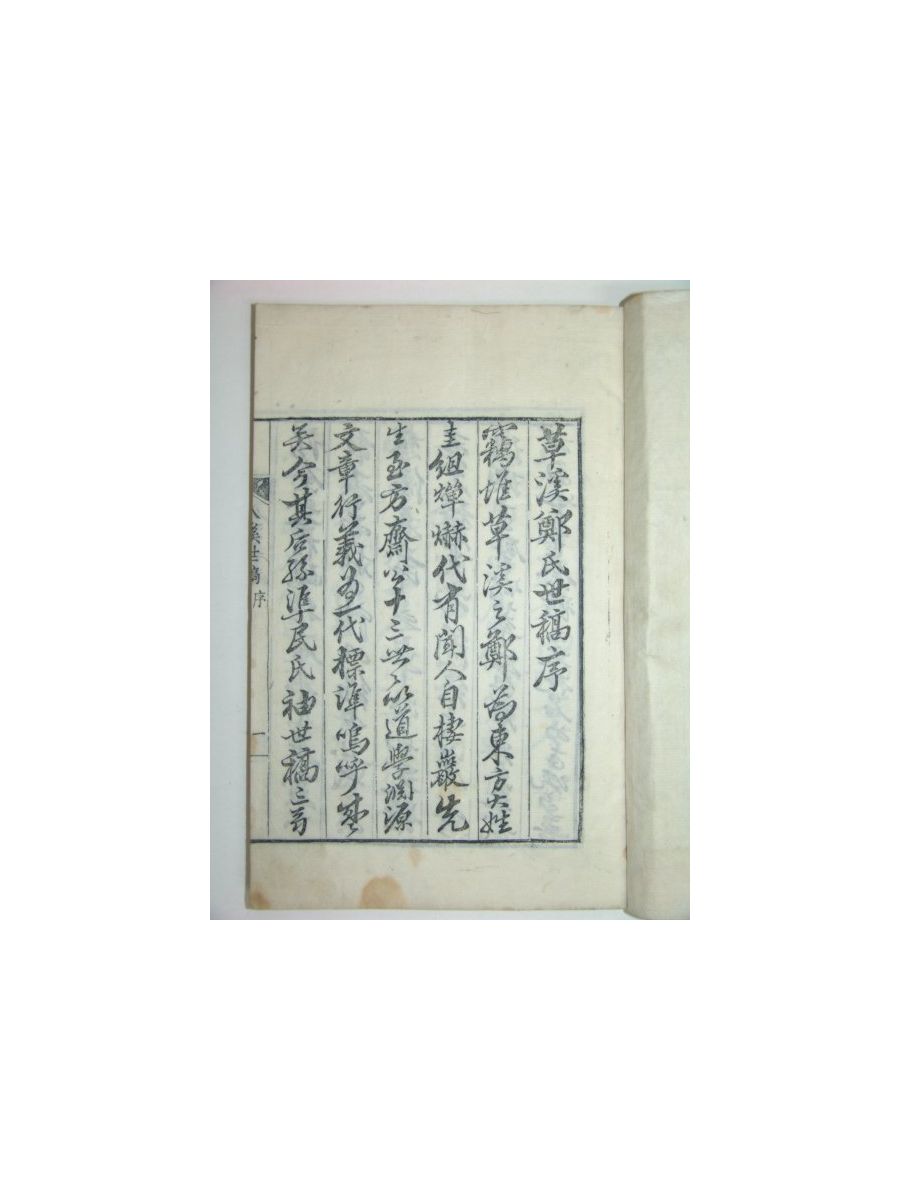 草溪鄭氏世稿序
竊惟草溪之鄭為東方大姓
圭組燀爀代有聞人自棲巖先
生至方齋公十三世以道學淵源
文章行義為一代標準嗚呼盛
矣今其后孫準民氏袖世稿三
八溪世稿序
一